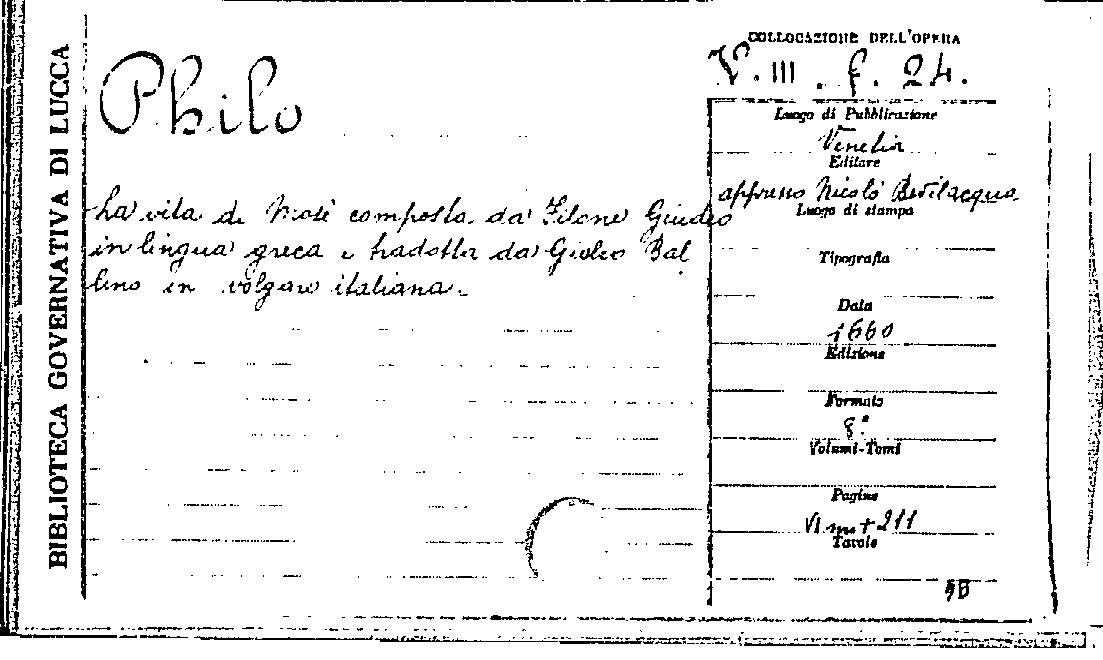 BIBLIOTECA GOVERNATIVA DI LUCCA
Philo
La vita di Mosè composta da Filone Giudeo
in lingua greca e tradotta da Giulio Bal
lino in volgare italiana.
COLLOCAZIONE DELL'OPERA
V. III. f. 24.
Luogo di Pubblicazione
Venetia
Editore
appresso Nicolò Bevilacqua
Luogo di stampa
Tipografia
Data
1560
Edizione
Formato
8°
Volumi-Tomi
Pagine
VI nn + 211
Tavole